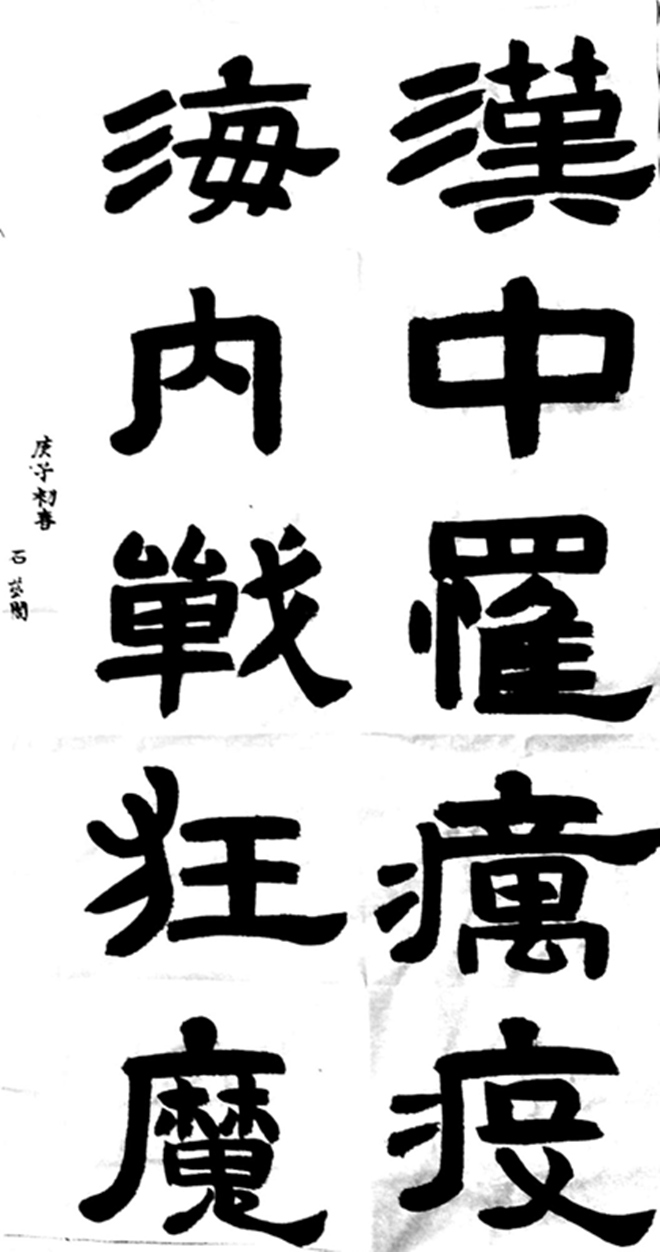 漢中罹癘疫
海内戰狂魔
庚子初春
石
閣